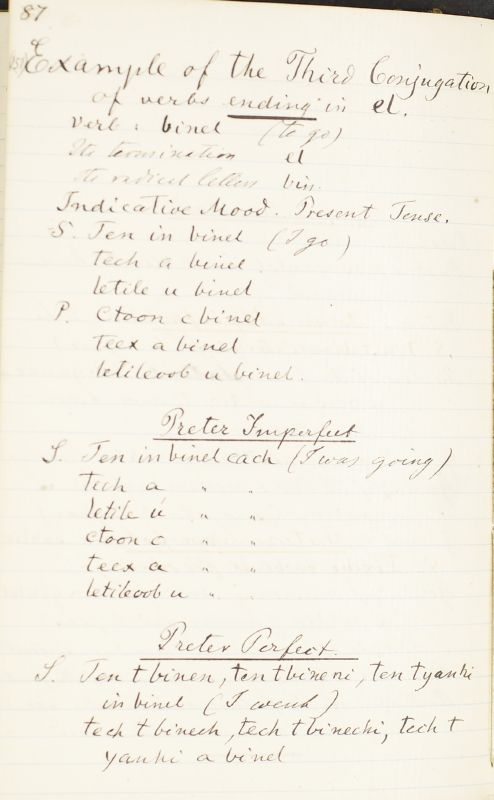 87
Example of the Third Conjugation
of verbs ending in el.
verb: binel (to go)
Its termination el
Its radical letters bin.
Indicative Mood. Present Tense.
S. Ten in binel (I go)
tech a binel
letile u binel
P. Ctoon c binel
teex a binel
letileoob u binel.
Preter Imperfect
S. Ten in binel cach (I was going)
tech a " "
letile u " "
ctoon c " "
teex a " "
letileoob u " "
Preter Perfect.
S. Ten t binen, ten t bineni, ten t yanhi
in binel (I went)
tech t binech, tech t binechi, tech t
yanhi a binel